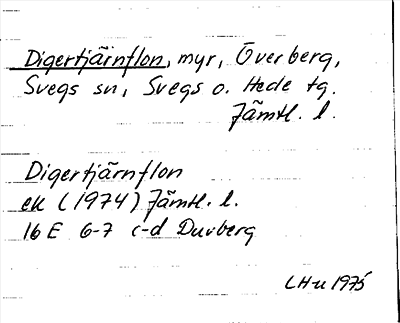 Digertjärnflon, myr, Överberg,
Svegs sn, Svegs o. Hede tg.
Jämtl. l.
Digertjärnflon
ek (1974) Jämtl. l.
16 E 6-7 c-d Duvberg
LH-u 1975